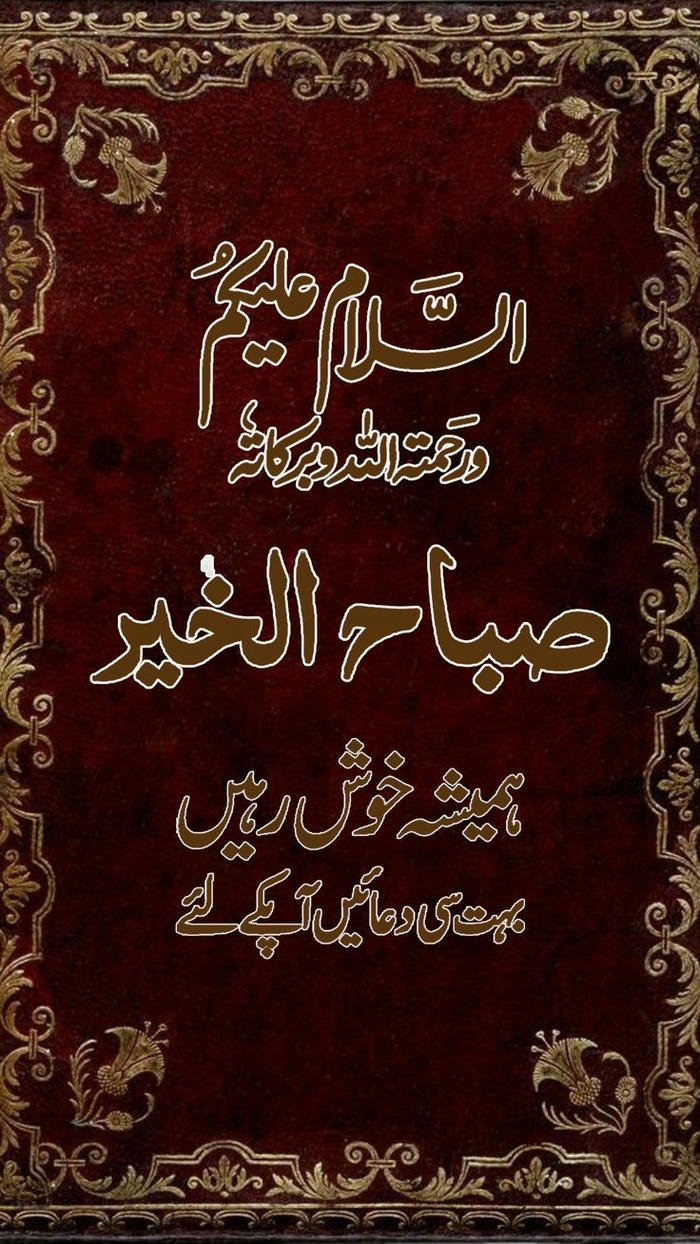 السَّلام علیکمُ
ورَحمتہ اللہ وبرکاتہ
صباح الخیر
ہمیشہ خوش رہیں
بہت سی دعائیں آپکے لئے